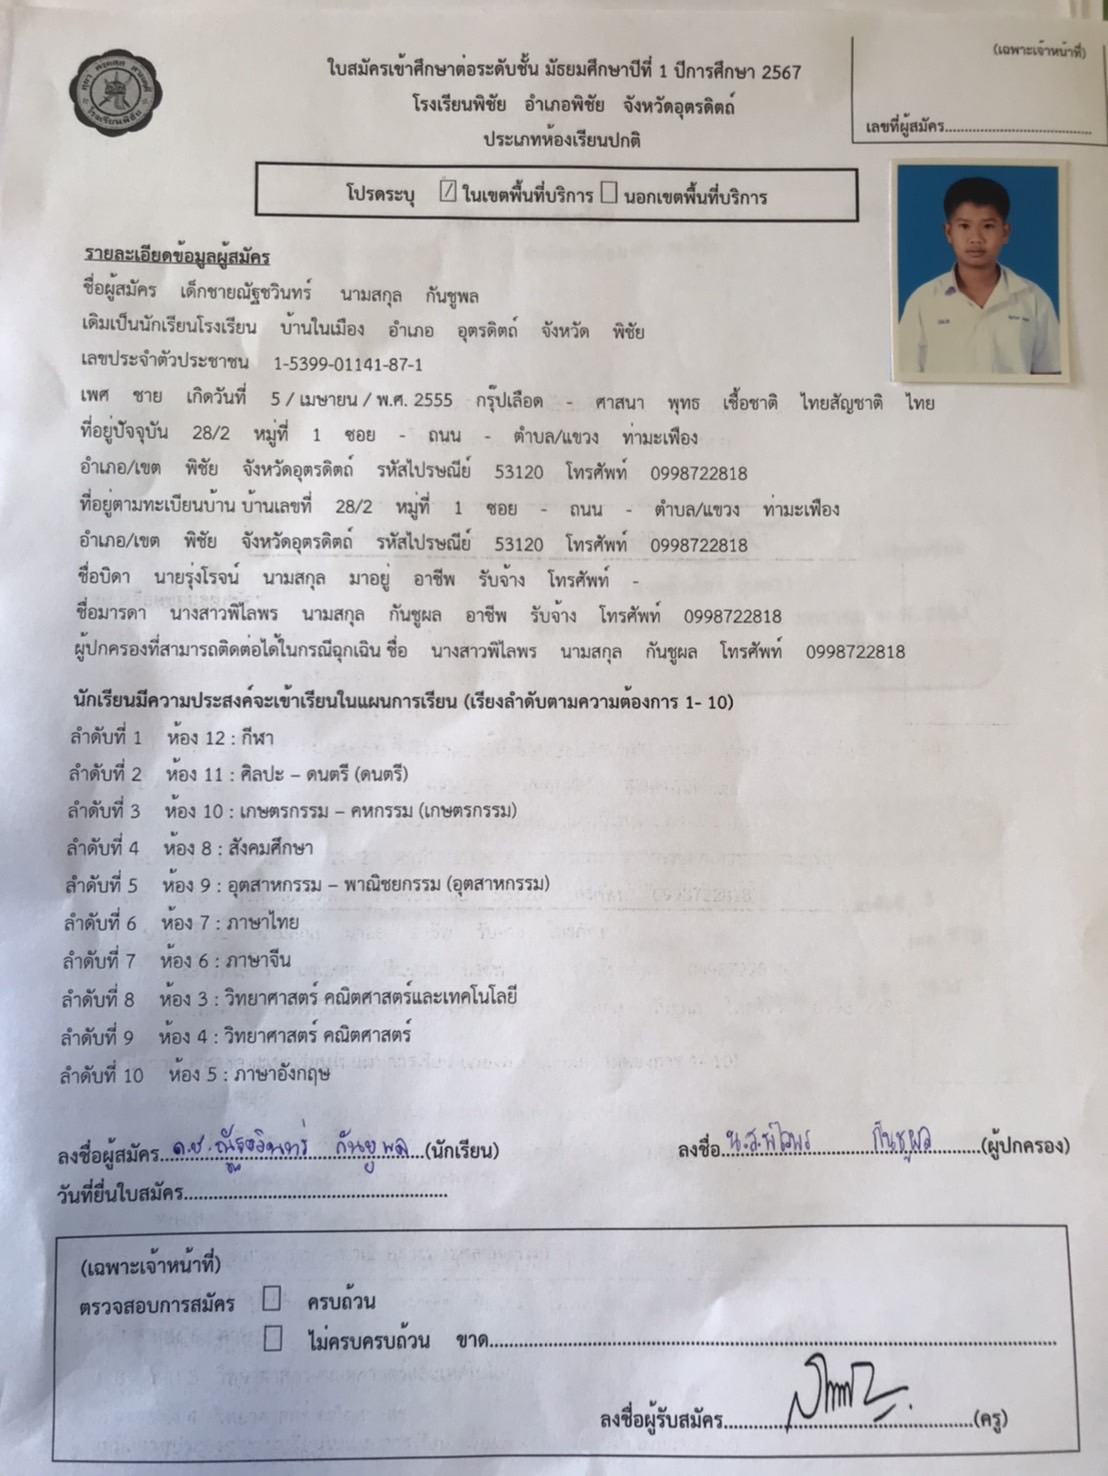 (เฉพาะเจ้าหน้าที่)
ใบสมัครเข้าศึกษาต่อระดับชั้น มัธยมศึกษาปีที่ 1 ปีการศึกษา 2567
โรงเรียนพิชัย อำเภอพิชัย จังหวัดอุตรดิตถ์
เลขที่ผู้สมัคร
ประเภทห้องเรียนปกติ
โปรดระบุ / ในเขตพื้นที่บริการ นอกเขตพื้นที่บริการ
รายละเอียดข้อมูลผู้สมัคร
ชื่อผู้สมัคร เด็กชายณัฐชวินทร์ นามสกุล กันชูพล
เดิมเป็นนักเรียนโรงเรียน บ้านในเมือง อำเภอ อุตรดิตถ์ จังหวัด พิชัย
เลขประจำตัวประชาชน 1-5399-01141-87-1
เพศ ชาย เกิดวันที่ 5 / เมษายน / พ.ศ. 2555 กรุ๊ปเลือด - ศาสนา พุทธ เชื้อชาติ ไทยสัญชาติ ไทย
ที่อยู่ปัจจุบัน 28/2 หมู่ที่ 1 ซอย - ถนน - ตำบล/แขวง ท่ามะเฟือง
อำเภอ/เขต พิชัย จังหวัดอุตรดิตถ์ รหัสไปรษณีย์ 53120 โทรศัพท์ 0998722818
ที่อยู่ตามทะเบียนบ้าน บ้านเลขที่ 28/2 หมู่ที่ 1 ซอย - ถนน - ตำบล/แขวง ท่ามะเฟือง
อำเภอ/เขต พิชัย จังหวัดอุตรดิตถ์ รหัสไปรษณีย์ 53120 โทรศัพท์ 0998722818
ชื่อบิดา นายรุ่งโรจน์ นามสกุล มาอยู่ อาชีพ รับจ้าง โทรศัพท์ -
ชื่อมารดา นางสาวพิไลพร นามสกุล กันชูผล อาชีพ รับจ้าง โทรศัพท์ 0998722818
ผู้ปกครองที่สามารถติดต่อได้ในกรณีฉุกเฉิน ชื่อ นางสาวพิไลพร นามสกุล กันชูผล โทรศัพท์ 0998722818
นักเรียนมีความประสงค์จะเข้าเรียนในแผนการเรียน (เรียงลำดับตามความต้องการ 1- 10)
ลำดับที่ 1 ห้อง 12 : กีฬา
ลำดับที่ 2 ห้อง 11 : ศิลปะ – ดนตรี (ดนตรี)
ลำดับที่ 3 ห้อง 10 : เกษตรกรรม – คหกรรม (เกษตรกรรม)
ลำดับที่ 4 ห้อง 8 : สังคมศึกษา
ลำดับที่ 5 ห้อง 9 : อุตสาหกรรม – พาณิชยกรรม (อุตสาหกรรม)
ลำดับที่ 6 ห้อง 7 : ภาษาไทย
ลำดับที่ 7 ห้อง 6 : ภาษาจีน
ลำดับที่ 8 ห้อง 3 : วิทยาศาสตร์ คณิตศาสตร์และเทคโนโลยี
ลำดับที่ 9 ห้อง 4 : วิทยาศาสตร์ คณิตศาสตร์
ลำดับที่ 10 ห้อง 5 : ภาษาอังกฤษ
ลงชื่อผู้สมัคร ด.ช.ณัฐชวินทร์ กันชูพล (นักเรียน) ลงชื่อ น.ส.พิไลพร กันชูผล (ผู้ปกครอง)
วันที่ยื่นใบสมัคร
(เฉพาะเจ้าหน้าที่)
ตรวจสอบการสมัคร ครบถ้วน
ไม่ครบครบถ้วน ขาด
ลงชื่อผู้รับสมัคร (ครู)